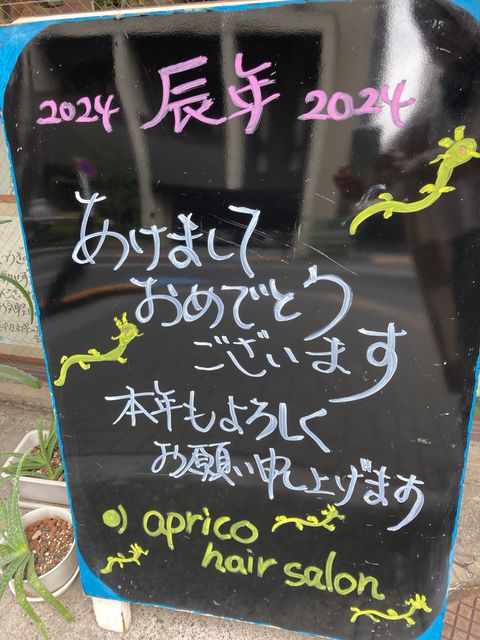 2024 辰年 2024
あけまして
おめでとう
ございます
本年もよろしく
お願い申し上げます
aprico
hair salon